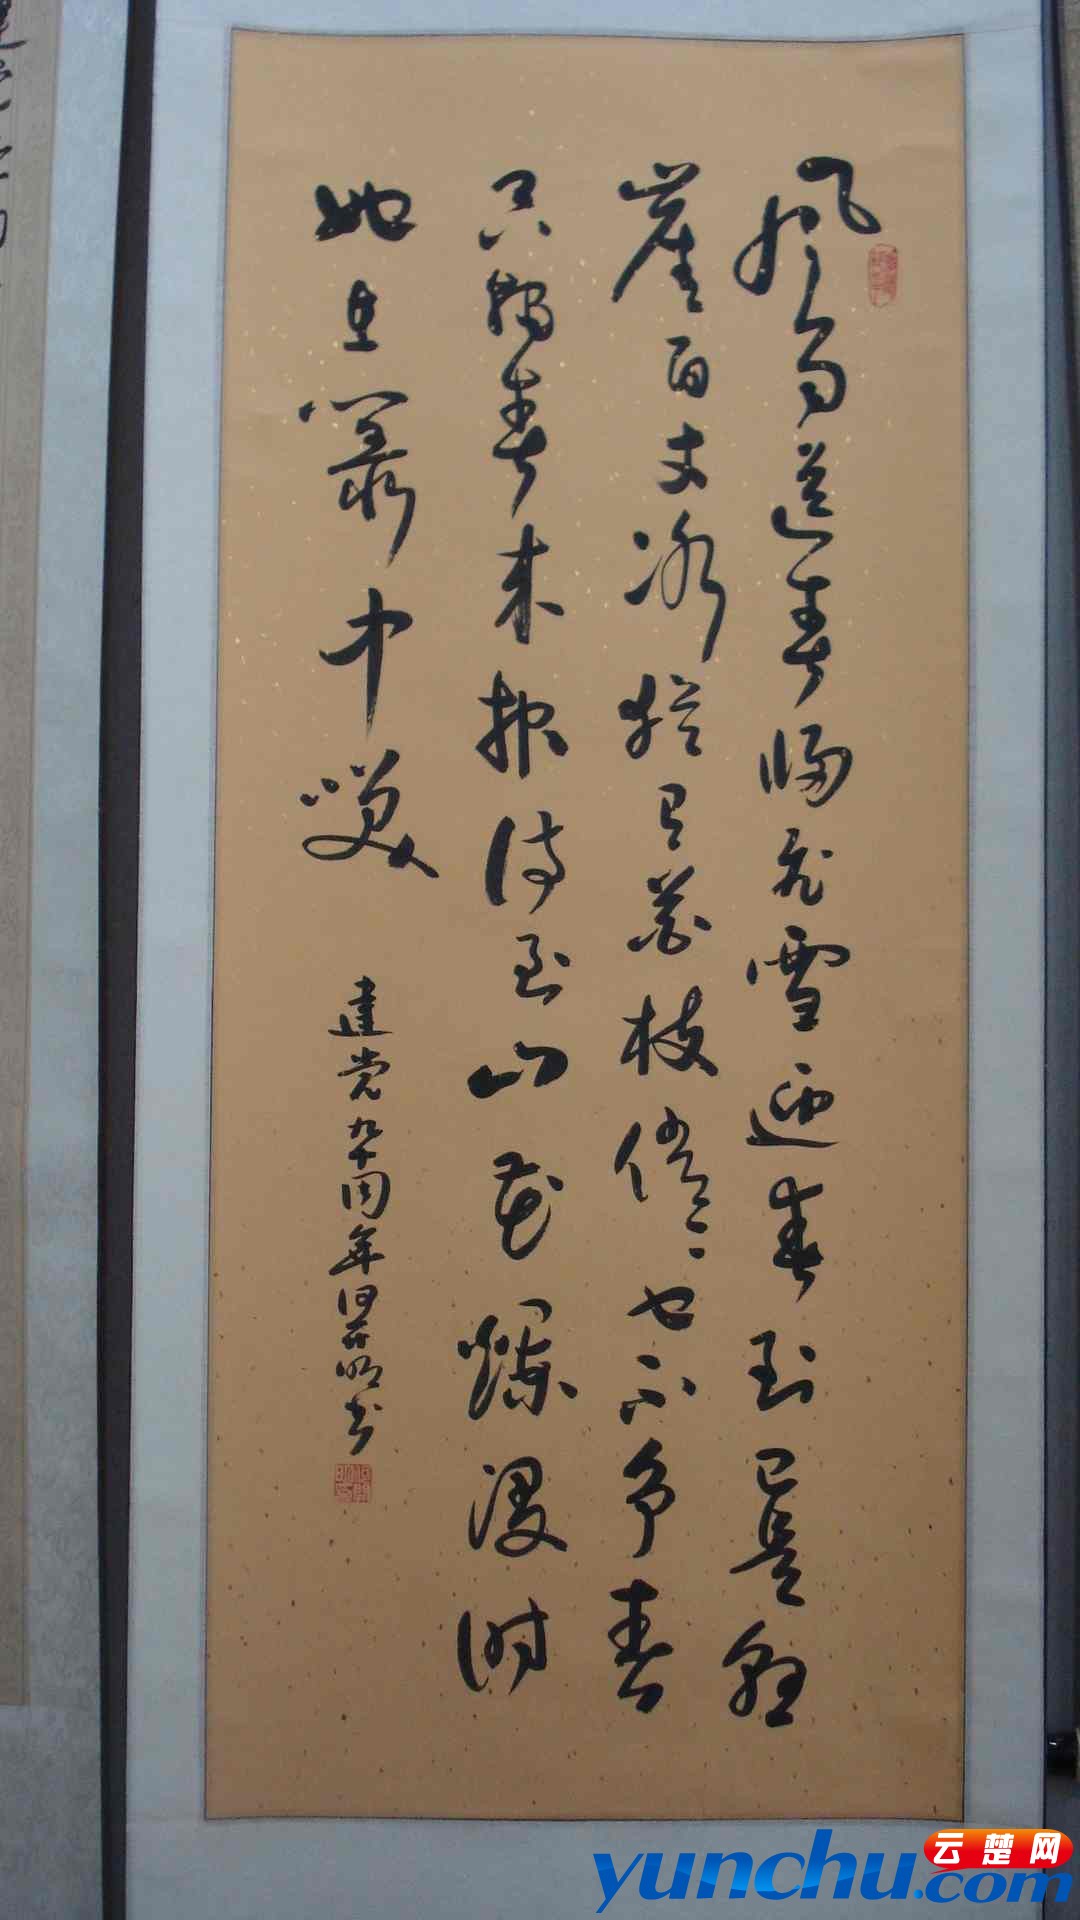 风雨送春归飞雪迎春到已是悬
崖百丈冰犹有花枝俏〻也不争春
只春来报待到山花烂漫时
她在丛中笑
建党九十周年 明书
云楚网
yunchu.com